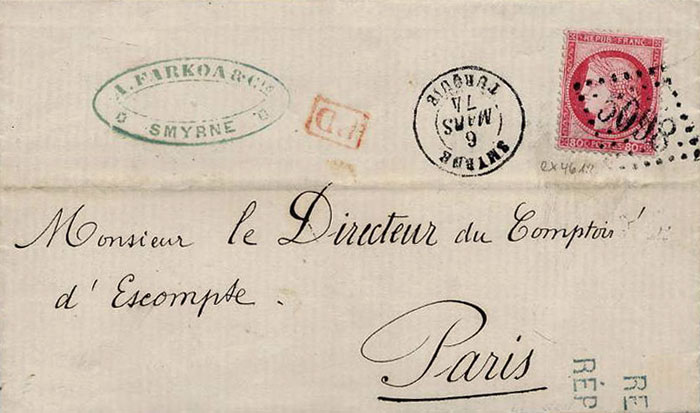 A. FARKOA & Cie
SMYRNE
P.D
SMYRNE
6
MARS
74
TURQUIE
REPUB FRANC
5098
80 POSTES 80
ex 4612
Monsieur le Directeur du Comptoir
d'Escompte.
Paris
RE
RÉP